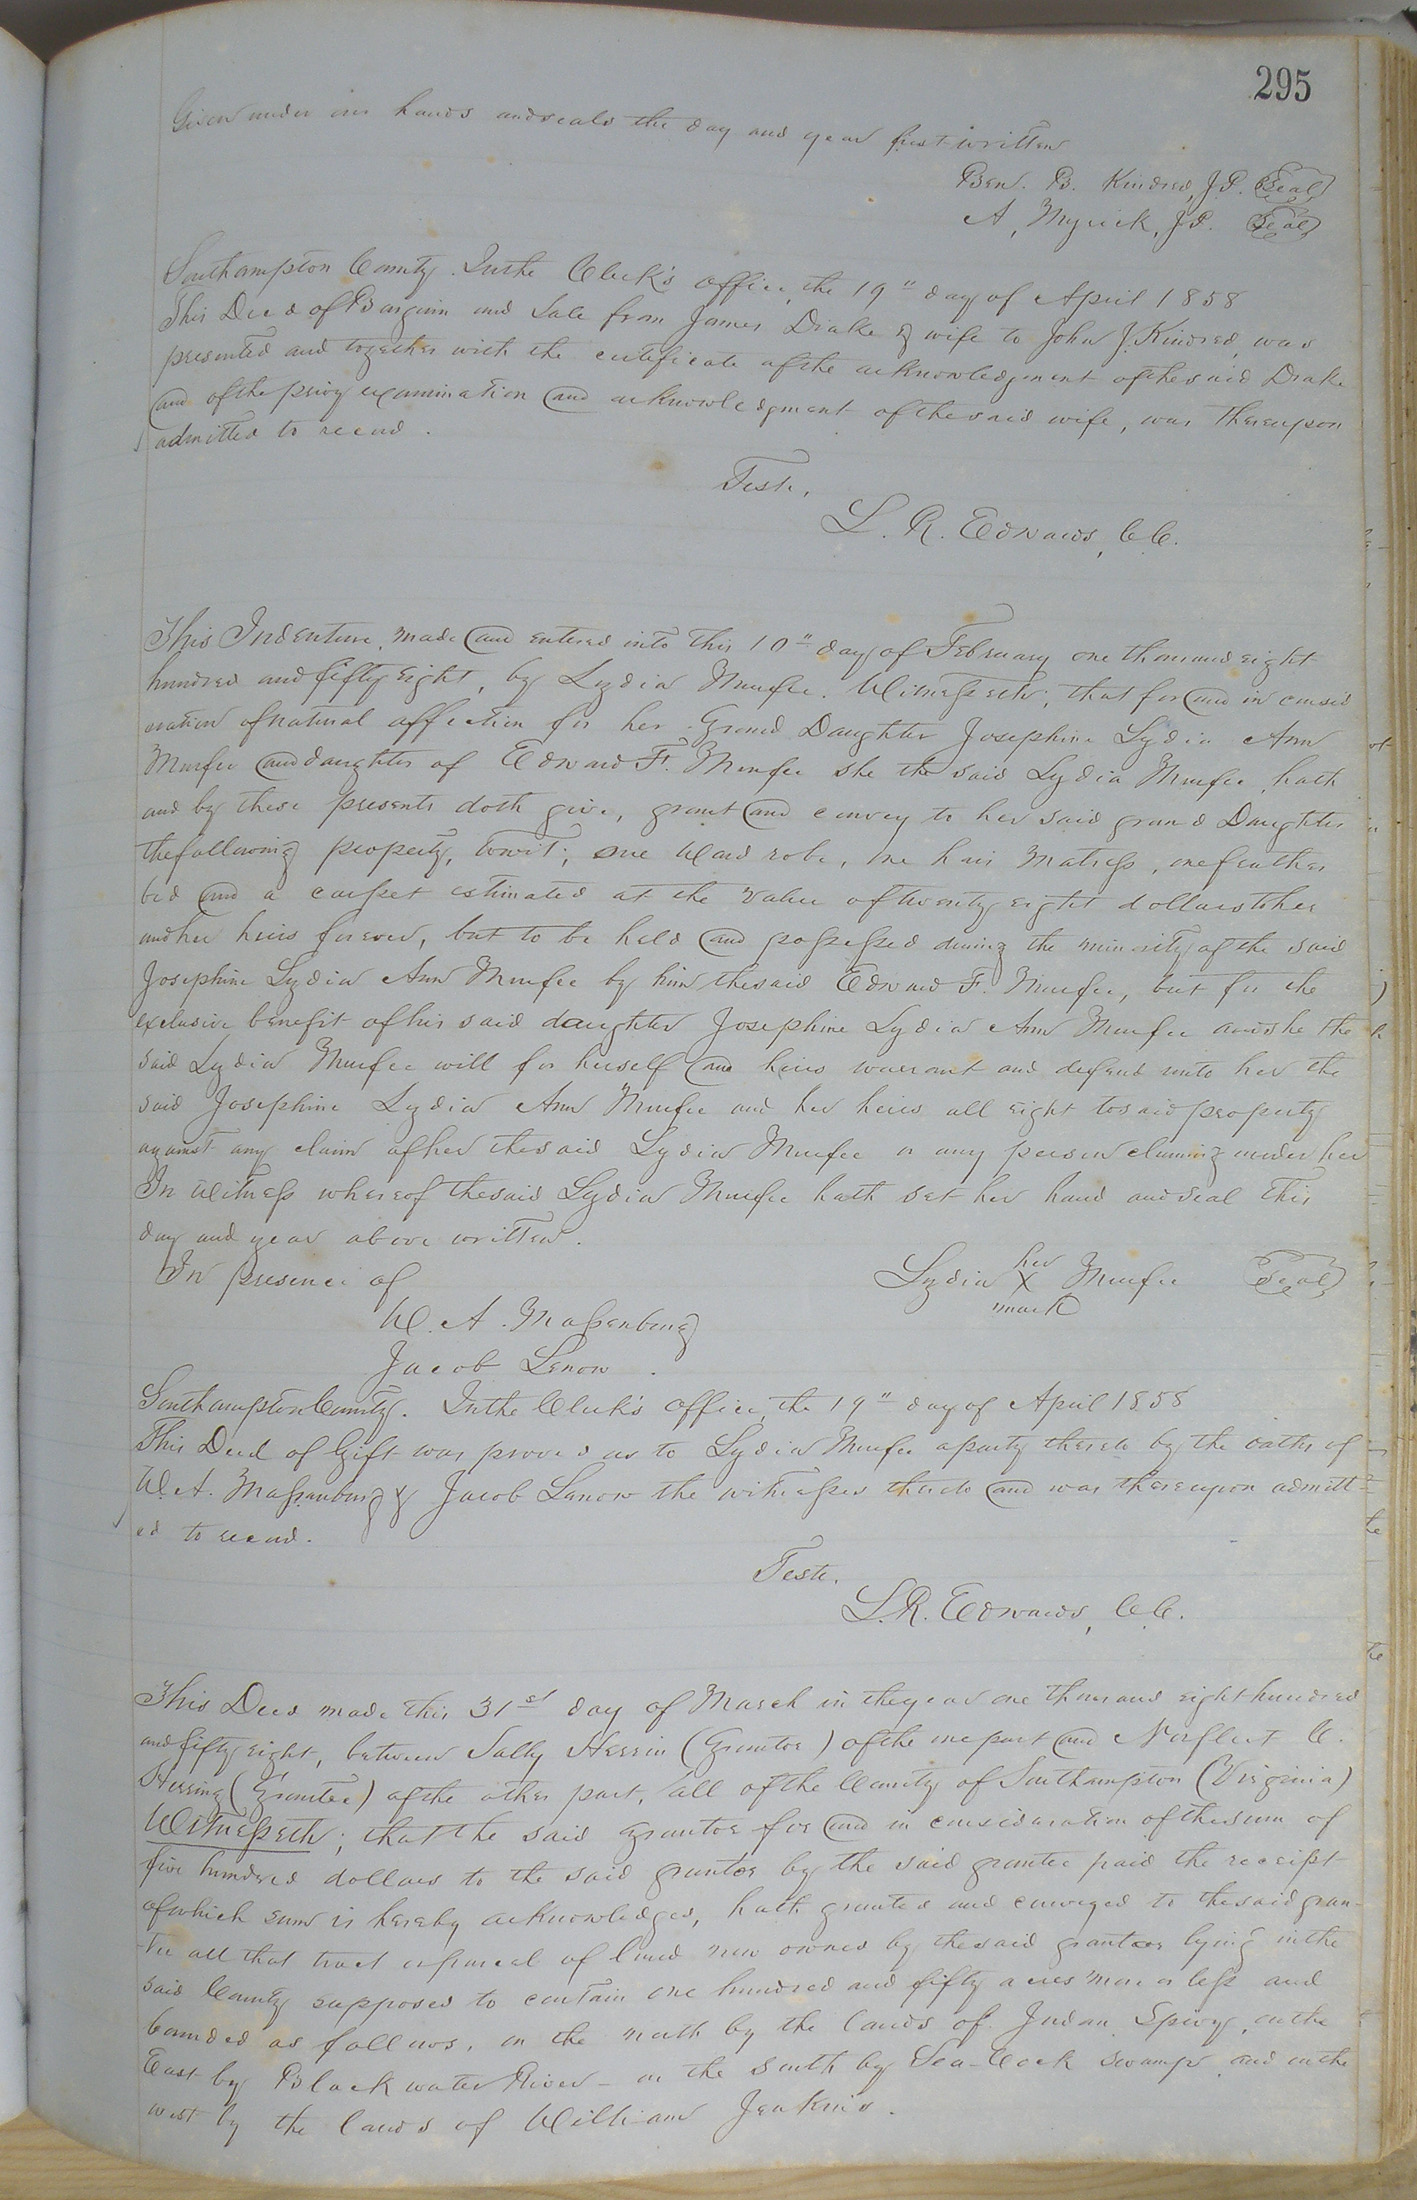 295
Given under our hands and seals the day and year first written
Ben. B. Kindred, J.P. (Seal)
A, Myrick, J.P. (Seal)
Southampton County. In the Clerk's office, the 19" day of April 1858
This Deed of Bargain and Sale from James Drake & wife to John J. Kindred, was
presented and together with the certificate of the acknowledgment of the said Drake
and of the privy examination and acknowledgment of the said wife, was thereupon
admitted to record.
Teste,
L. R. Edwards, C.C.
This Indenture, made and entered into this 10" day of February one thousand eight
hundred and fifty eight, by Lydia Murfee. Witnesseth; that for and in consid
eration of natural affection for her Grand Daughter Josephine Lydia Ann
Murfee and daughter of Edward F. Murfee she the said Lydia Murfee, hath
and by these presents doth give, grant and convey to her said grand Daughter
the following property, towit; one Ward robe, one hair Matress, one feather
bed and a carpet estimated at the value of twenty eight dollars to her
and her heirs forever, but to be held and possessed during the minority of the said
Josephine Lydia Ann Murfee by him the said Edward F. Murfee, but for the
exclusive benefit of his said daughter Josephine Lydia Ann Murfee and she the
said Lydia Murfee will for herself and heirs warrant and defend unto her the
said Josephine Lydia Ann Murfee and her heirs all right to said property
against any claim of her the said Lydia Murfee or any person claiming under her
In Witness whereof the said Lydia Murfee hath set her hand and seal this
day and year above written.
In presence of
Lydia her X mark Murfee (Seal)
W. A. Massenburg
Jacob Lenow.
Southampton County. In the Clerk's office, the 19" day of April 1858
This Deed of Gift was proved as to Lydia Murfee a party thereto by the oaths of
W. A. Massenburg & Jacob Lenow the witnesses thereto and was thereupon admitt-
ed to record.
Teste.
L. R. Edwards, C.C.
This Deed made this 31st day of March in the year one thousand eight hundred
and fifty eight, between Sally Herrin (Grantor) of the one part and Norfleet C.
Herring (Grantee) of the other part, all of the County of Southampton (Virginia)
Witnesseth; that the said grantor for and in consideration of the sum of
five hundred dollars to the said grantor by the said grantee paid the receipt
of which sum is hereby acknowledged, hath granted and conveyed to the said gran-
tee all that tract or parcel of land now owned by the said grantor lying in the
said County supposed to contain one hundred and fifty acres more or less and
bounded as follows, on the north by the lands of Judan Spivy, on the
East by Blackwater River - on the south by Sea-Cock swamp and on the
west by the lands of William Jenkins.